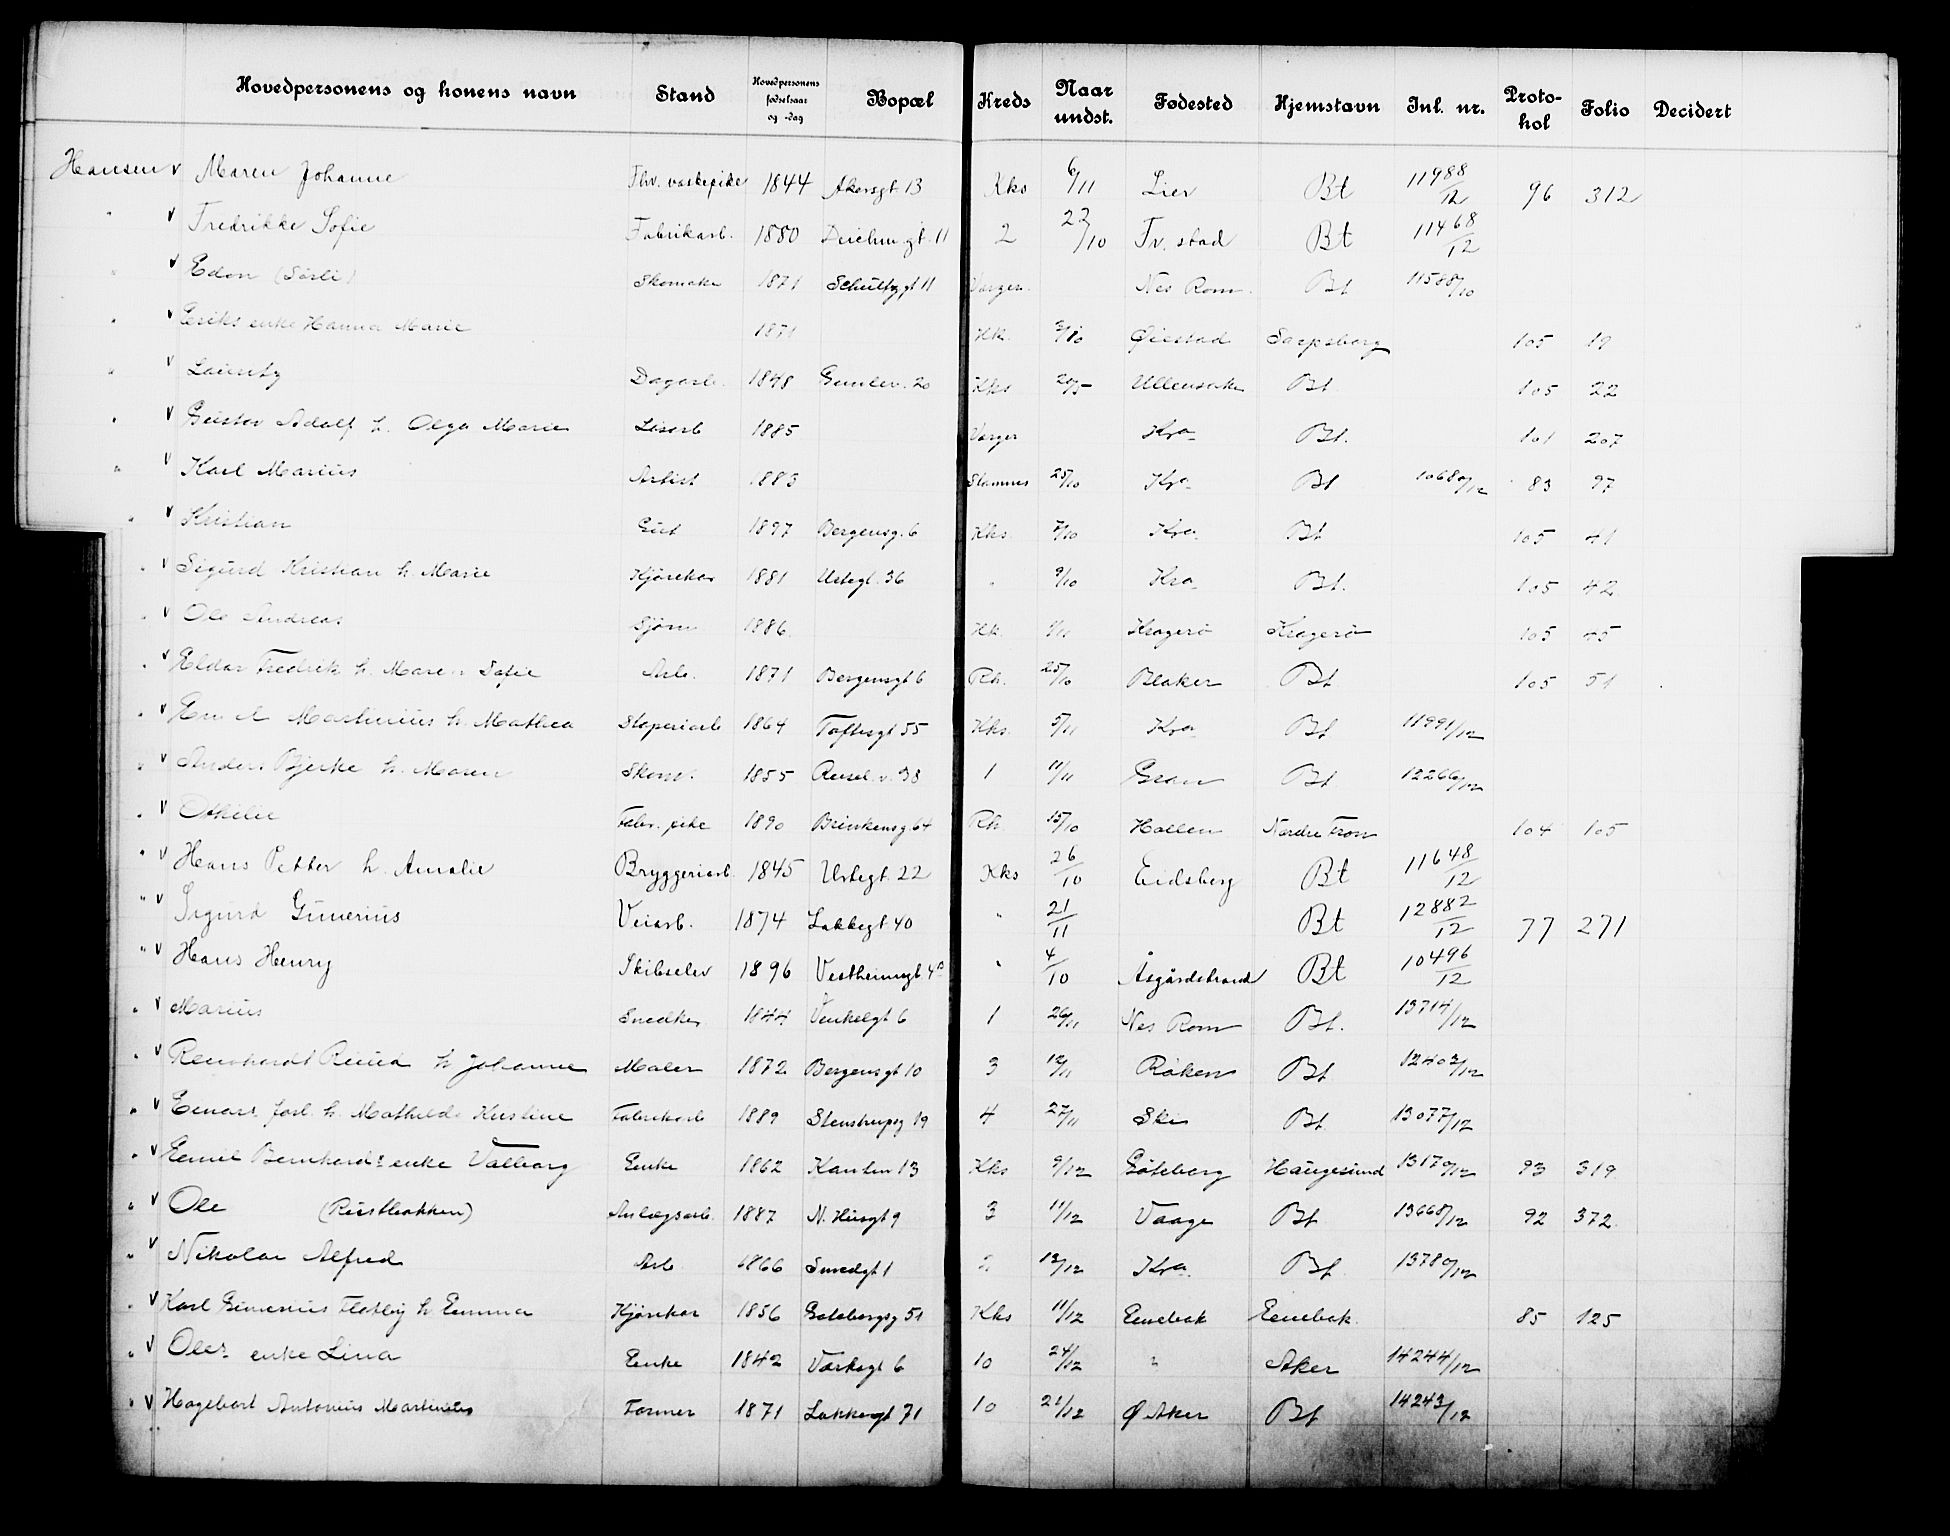 Hovedpersonens og konens navn Stand Hovedpersonens fødselsaar og -dag Bopæl Kreds Naar undst. Fødested Hjemstavn Inl. nr. Protokol Folio Decidert
Hansen v Maren Johanne Fhv. vaskepike 1844 Akersgt 13 Kks 6/11 Lier Bt 11988/12 96 312
" v Fredrikke Sofie Fabrikarb. 1880 Deichm.gt. 11 2 22/10 Fr. stad Bt 11468/12
" v Edon (Sörli) Skomaker 1871 Schultzgt 11 Varger. Nes Rom. Bt 11588/10
" v Eriks enke Hanna Marie 1871 Kk. Øiestad Sarpsborg 105 19
" v Lauritz Dagarb. 1848 Kks 20/5 Ullensaker Bt. 105 22
" v Gustav Adolf h. Olga Marie 1885 Varger Kra. Bt. 101 207
" v Karl Marius Artist 1883 Stamnes 25/10 Kra. Bt 10680/12 83 97
" v Kristian Gut 1897 Bergensg. 6 Kks. 7/10 Kra. Bt 105 41
" v Sigurd Kristian h. Marie Kjörekar 1881 Urtegt. 36 " 9/10 Kra. Bt. 105 42
" v Ole Andreas Sjöm. 1886. Kk. Kragerö Kragerö 105 45
" v Eldar Fredrik h. Maren Sofie Arb. 1871 Bergensgt 6 Rh. 25/10 Blaker Bt 105 51
" v Emil Martinius h. Mathea Støperiarb 1864 Toftesgt 55 Kks. 5/11 Kra Bt 11991/12
" v Anders Bjerke h. Maren Skom. 1855 38 1 11/11 Gran Bt 12266/12
" v Othilie Fabr. pike 1890 Brinkensg 64 Rh 15/10 Hollen Nordre Fron 104 105
" v Hans Petter h. Amalie Bryggeriarb. 1845 Urtegt. 22 Kks 26/10 Eidsberg Bt 11648/12
" v Sigurd Gunerius Veiarb. 1874 Lakkegt 40 " 21/11 Bt 12882/12 77 271
" v Hans Henry Skibselev 1896 Vestheimsgt 4B " 4/10 Åsgårdstrand Bt 10496/12
" v Marius Snedker 1844 Venkelgt 6 1 26/11 Nes Rom Bt. 13714/12
" v Reinhardt Ruud h Johanne Maler 1872 Bergensgt 10 3 12/11 Røken Bt 12403/12
" v Einar, forl. h. Mathilde Kristine Fabrikarb 1889 Stenstrupsg 19 4 27/11 Ski Bt 13077/12
" v Emil Bernhards enke Valborg Enke 1862 Kanten 13 Kks 9/12 Göteborg Haugesund 13170/12 93 319
" v Ole (Rustbakken) Anlægsarb. 1887 N. Husgt 9 3 11/12 Vaage Bt 13668/12 92 372.
" v Nikolai Alfred Arb 1866 Smedgt 1 2 12/12 Kra. Bt 13780/12
" v Karl Gunerius Flatby h Emma Kjörekar 1856 Goteborgsg 51 Kks 11/12 Enebak Enebak. 85 125
" v Oles enke Lina Enke 1842 Værksgt 6 10 24/12 " Aker 14244/12
" v Hagebart Antonius Martinius Former 1871 Lakkegt 71 10 21/12 Ø Aker Bt 14243/12